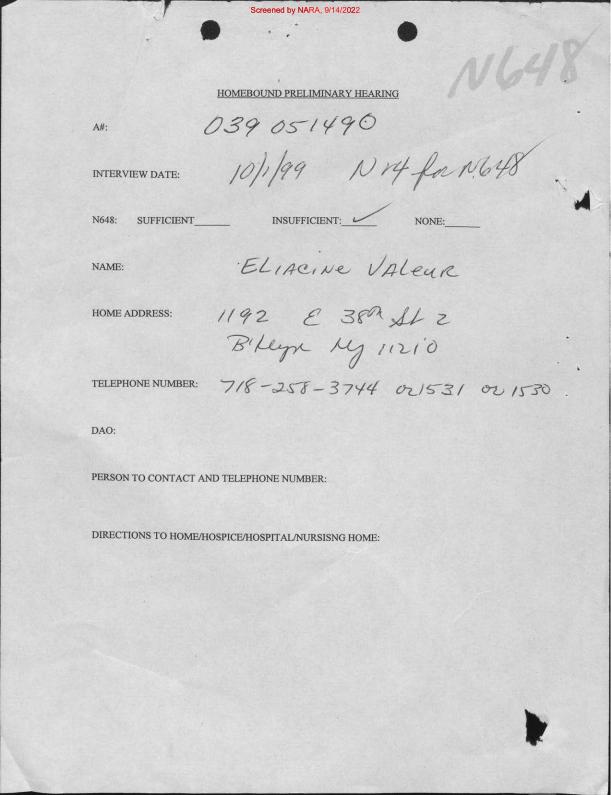 Screened by NARA, 9/14/2022
N648
HOMEBOUND PRELIMINARY HEARING
A#: 039 051490
INTERVIEW DATE: 10/1/99 N14 for N648
N648: SUFFICIENT______ INSUFFICIENT:__✓__ NONE:______
NAME: ELIACINE VALEUR
HOME ADDRESS: 1192 E 38th St 2
B'klyn NY 11210
TELEPHONE NUMBER: 718-258-3744 or 1531 or 1530
DAO:
PERSON TO CONTACT AND TELEPHONE NUMBER:
DIRECTIONS TO HOME/HOSPICE/HOSPITAL/NURSISNG HOME: